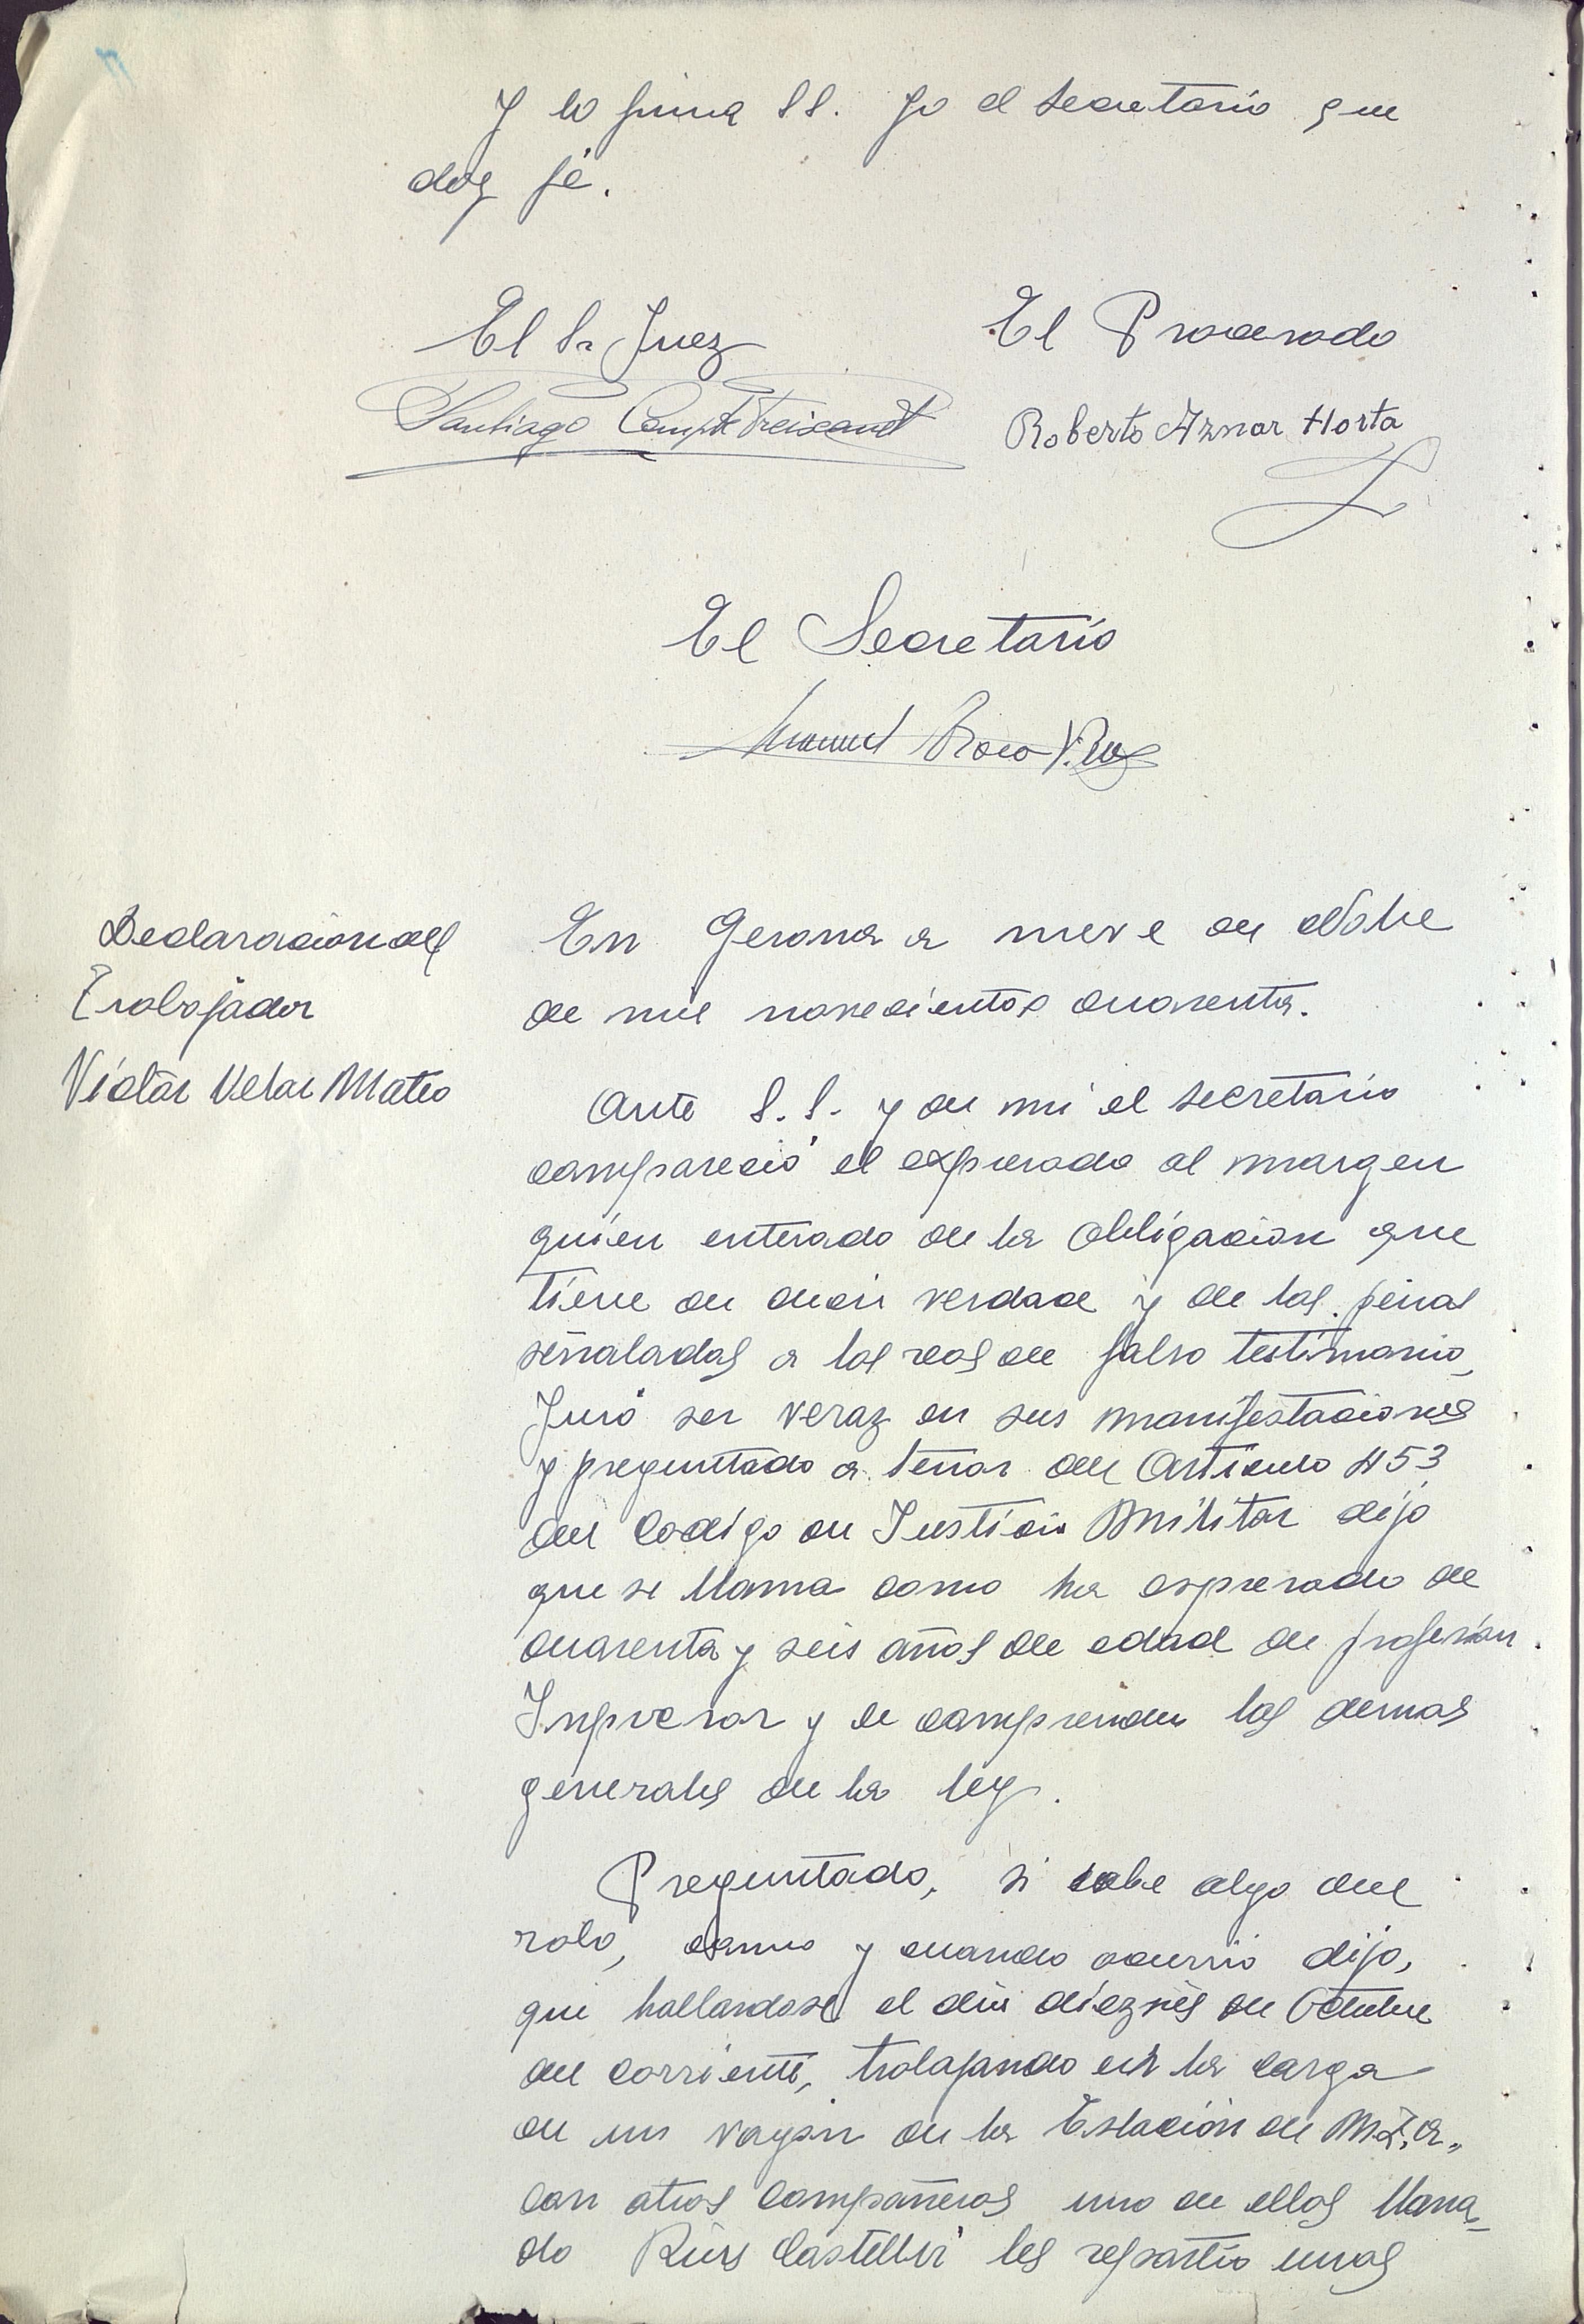 Y lo firma S S. yo el secretario que
doy fé.
El Sr Juez
El Procesado
Santiago
Roberto Aznar Horta
El Secretario
Manuel
Declaracion del
Trabajador
Victor Mateo
En Gerona a nueve de
de mil novecientos cuarenta.
Ante S. S. y de mi el secretario
compareció el expresado al margen
quien enterado de la obligacion que
tiene de decir verdad y de las penas
señaladas a los reos de falso testimonio,
Juró ser veraz en sus manifestaciones
y preguntado a tenor del Articulo 453
del Codigo de Justicia Militar dijo
que se llama como ha expresado de
cuarenta y seis años de edad de profesion
Inpresor y le comprenden las demas
generales de la ley.
Preguntado, si sabe algo del
robo, como y cuando ocurrió dijo,
que hallandose el dia de Octubre
del corriente, trabajando en la carga
de un vagon de la Estación de M.Z.A.,
con otros compañeros uno de ellos llama-
do Rius Castellvi les repartio unas